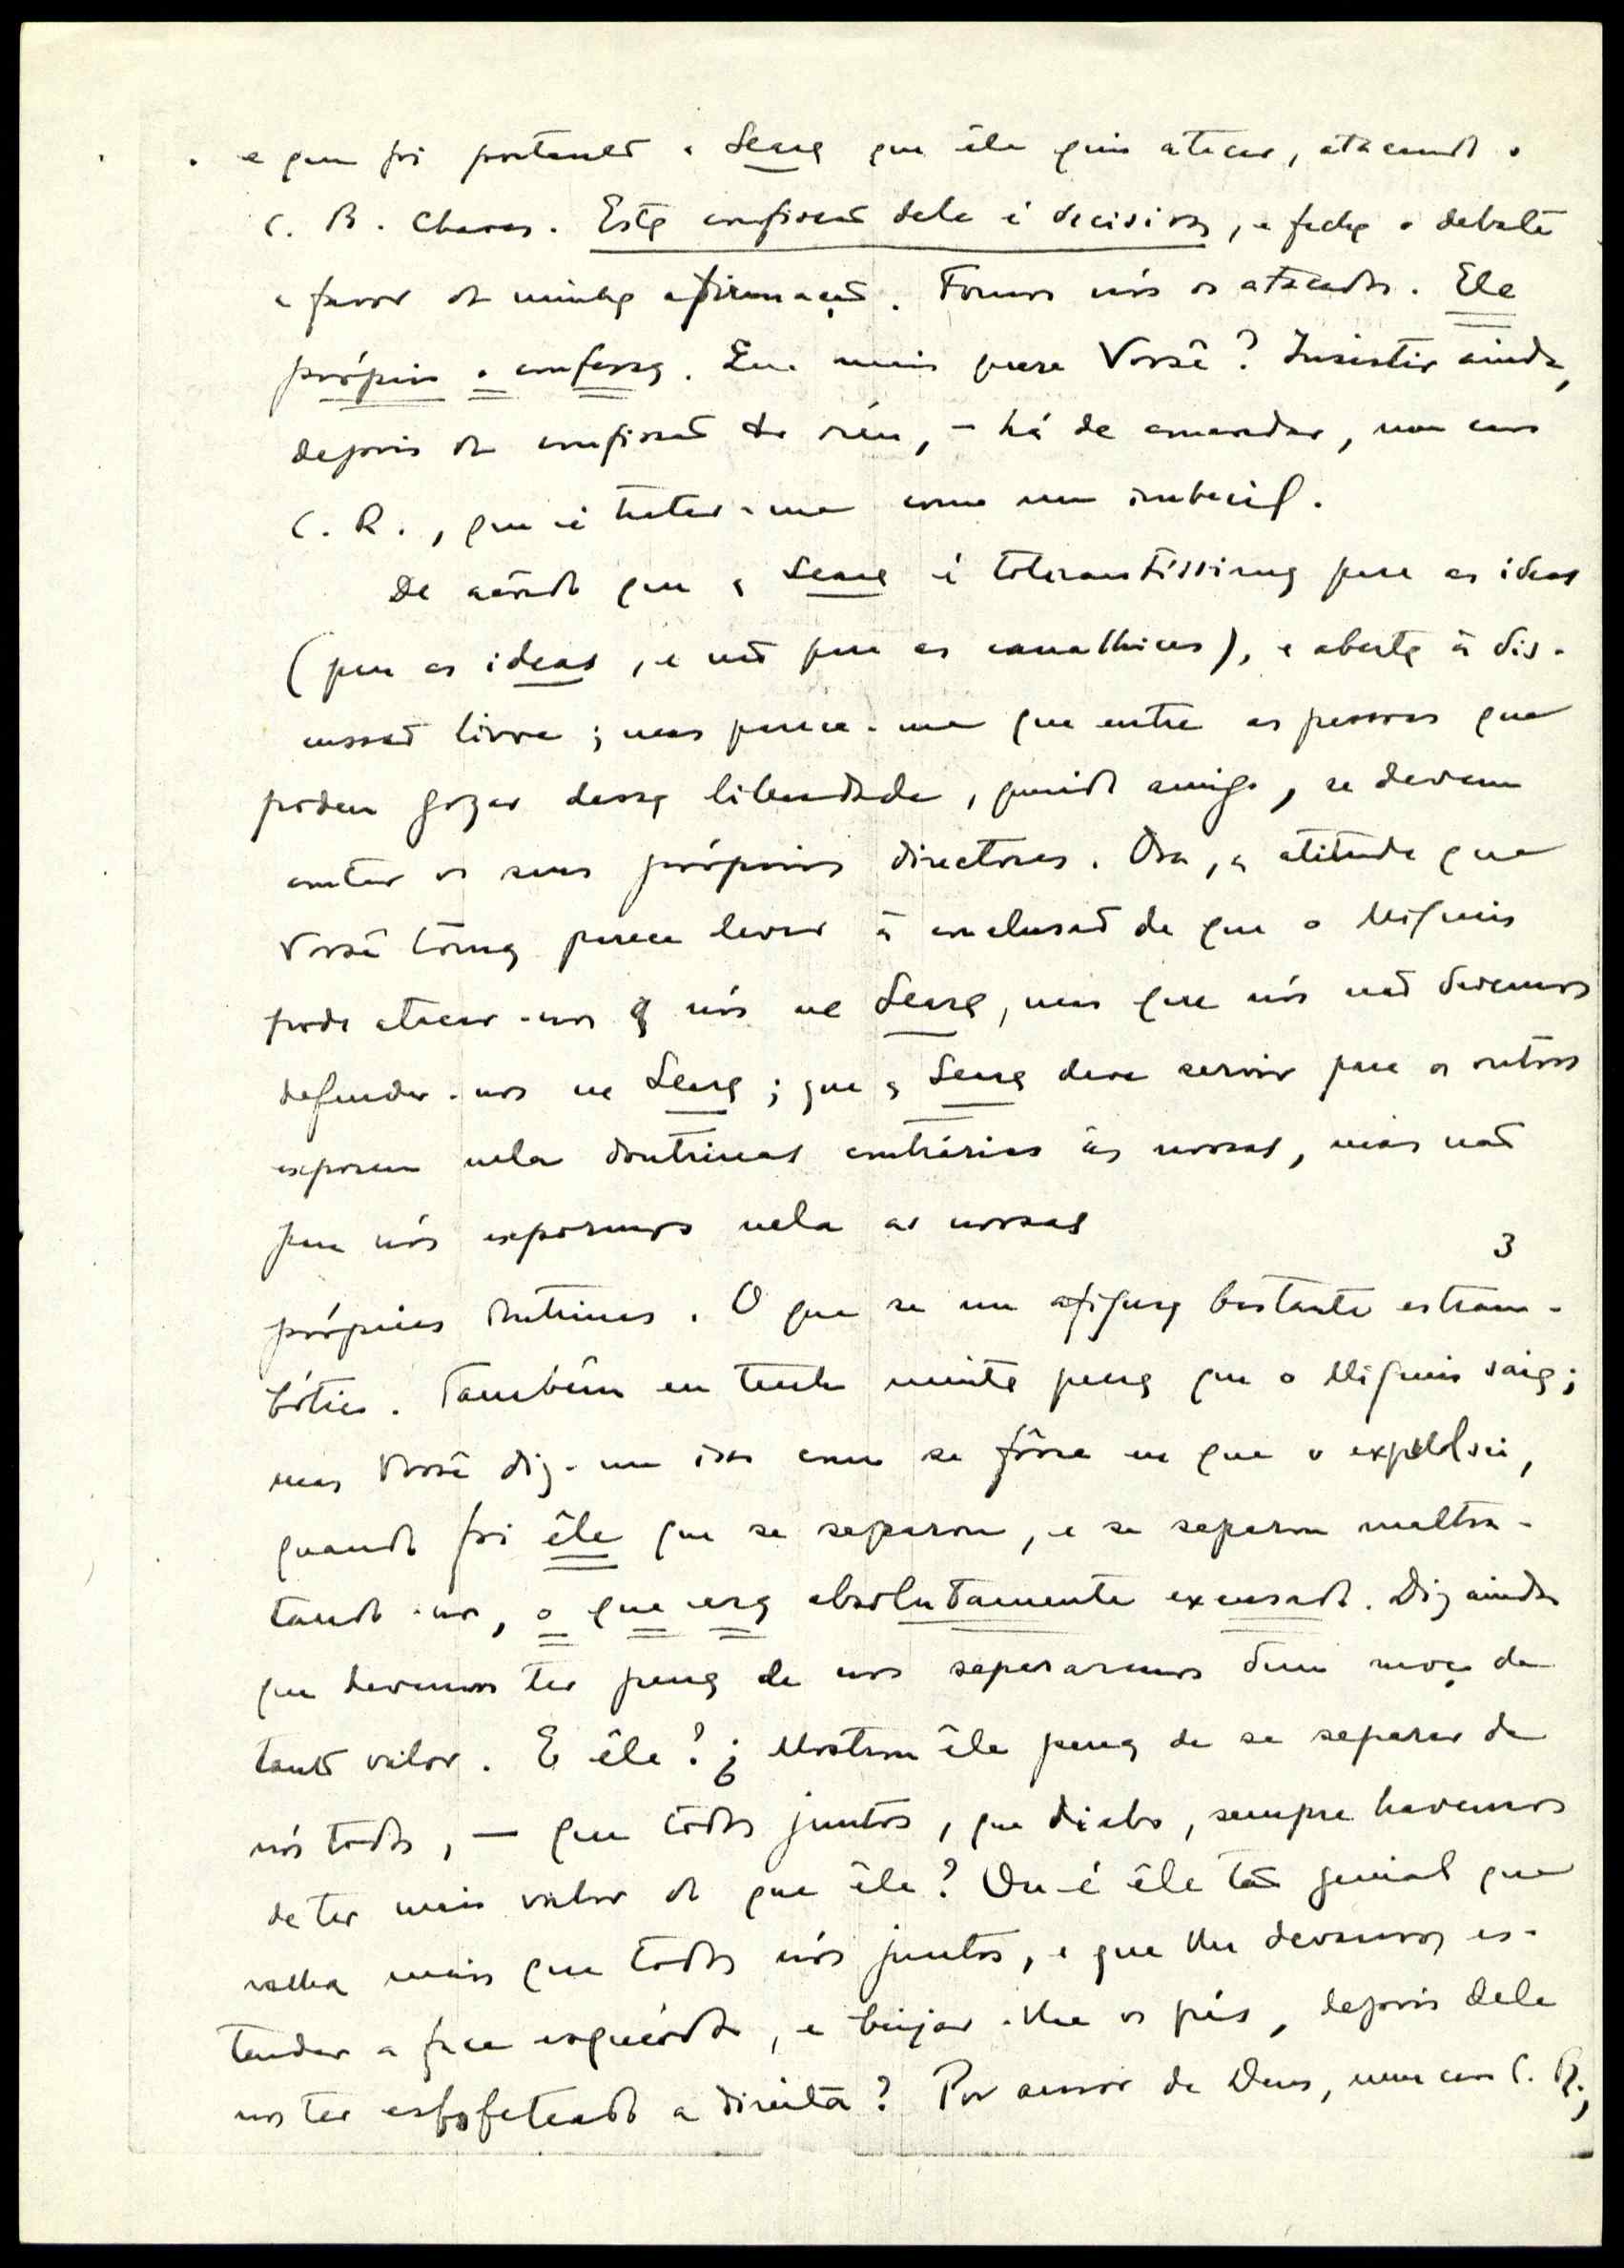 e que foi portanto a Seara que êle quis atacar, atacando o
C. B. Chaves. Esta confissão dele é decisiva, e fecha o debate
a favor da minha afirmação. Fomos nós os atacados. Ele
próprio o confessa. Que mais quere Você? Insistir ainda,
depois da confissão do réu, – há de concordar, meu caro
C. R., que é tratar-me como um imbecil.
De acôrdo que a Seara é tolerantíssima para as ideas
(para as ideas, e não para as canalhices), e aberta à dis-
cussão livre; mas parece-me que entre as pessoas que
podem gozar dessa liberdade, querido amigo, se devem
contar os seus próprios directores. Ora, a atitude que
Você toma parece levar à conclusão de que o Miguéis
pode atacar-nos a nós na Seara, mas que nós não devemos
defender-nos na Seara; que a Seara deve servir para os outros
exporem nela doutrinas contrárias às nossas, mas não
para nós expormos nela as nossas
3
próprias doutrinas. O que se me afigura bastante estram-
bótico. Também eu tenho muita pena que o Miguéis saia;
mas Você diz-me isso como se fôsse eu que o expulsei,
quando foi êle que se separou, e se separou maltra-
tando-nos, o que era absolutamente excusado. Diz ainda
que devemos ter pena de nos separarmos dum moço de
tanto valor. E êle? ¿Mostrou êle pena de se separar de
nós todos, — que todos juntos, que diabo, sempre havemos
de ter mais valor do que êle? Ou é êle tão genial que
valha mais que todos nós juntos, e que lhe devamos es-
tender a face esquerda, e beijar-lhe os pés, depois dele
nos ter esbofeteado a direita? Por amor de Deus, meu caro C. R.,